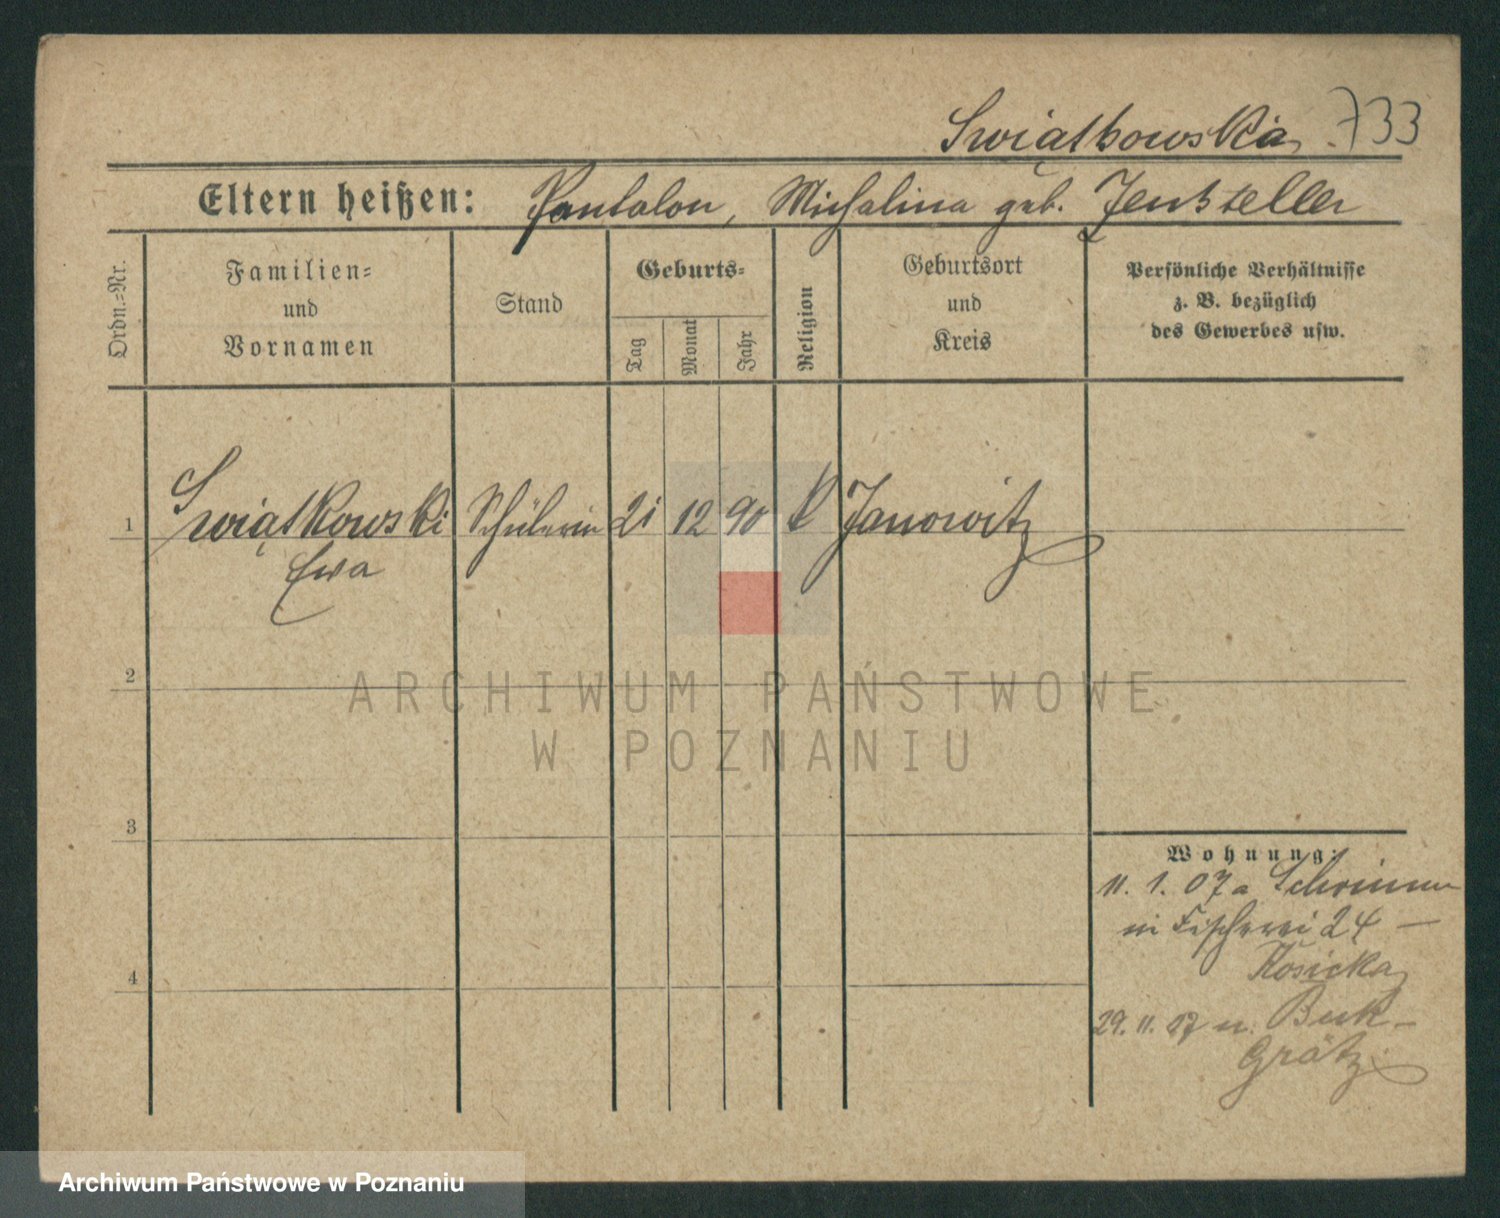 Swiątkowska 733
Eltern heißen: Pantalon, Michalina geb. Jenkteller
Ordn.=Nr.
Familien=
und
Vornamen
Stand
Geburts=
Tag
Monat
Jahr
Religion
Geburtsort
und
Kreis
Persönliche Verhältnisse
z. B. bezüglich
des Gewerbes usw.
1 Swiątkowski Schülerin 21 12 90 k Janowitz
Ewa
2
ARCHIWUM PAŃSTWOWE
W POZNANIU
3
Wohnung:
11. 1. 07 a Schrimm
in Fischerei 24 –
Kosicka
4
29. 11. 07 n. Buk-
Grätz.
Archiwum Państwowe w Poznaniu